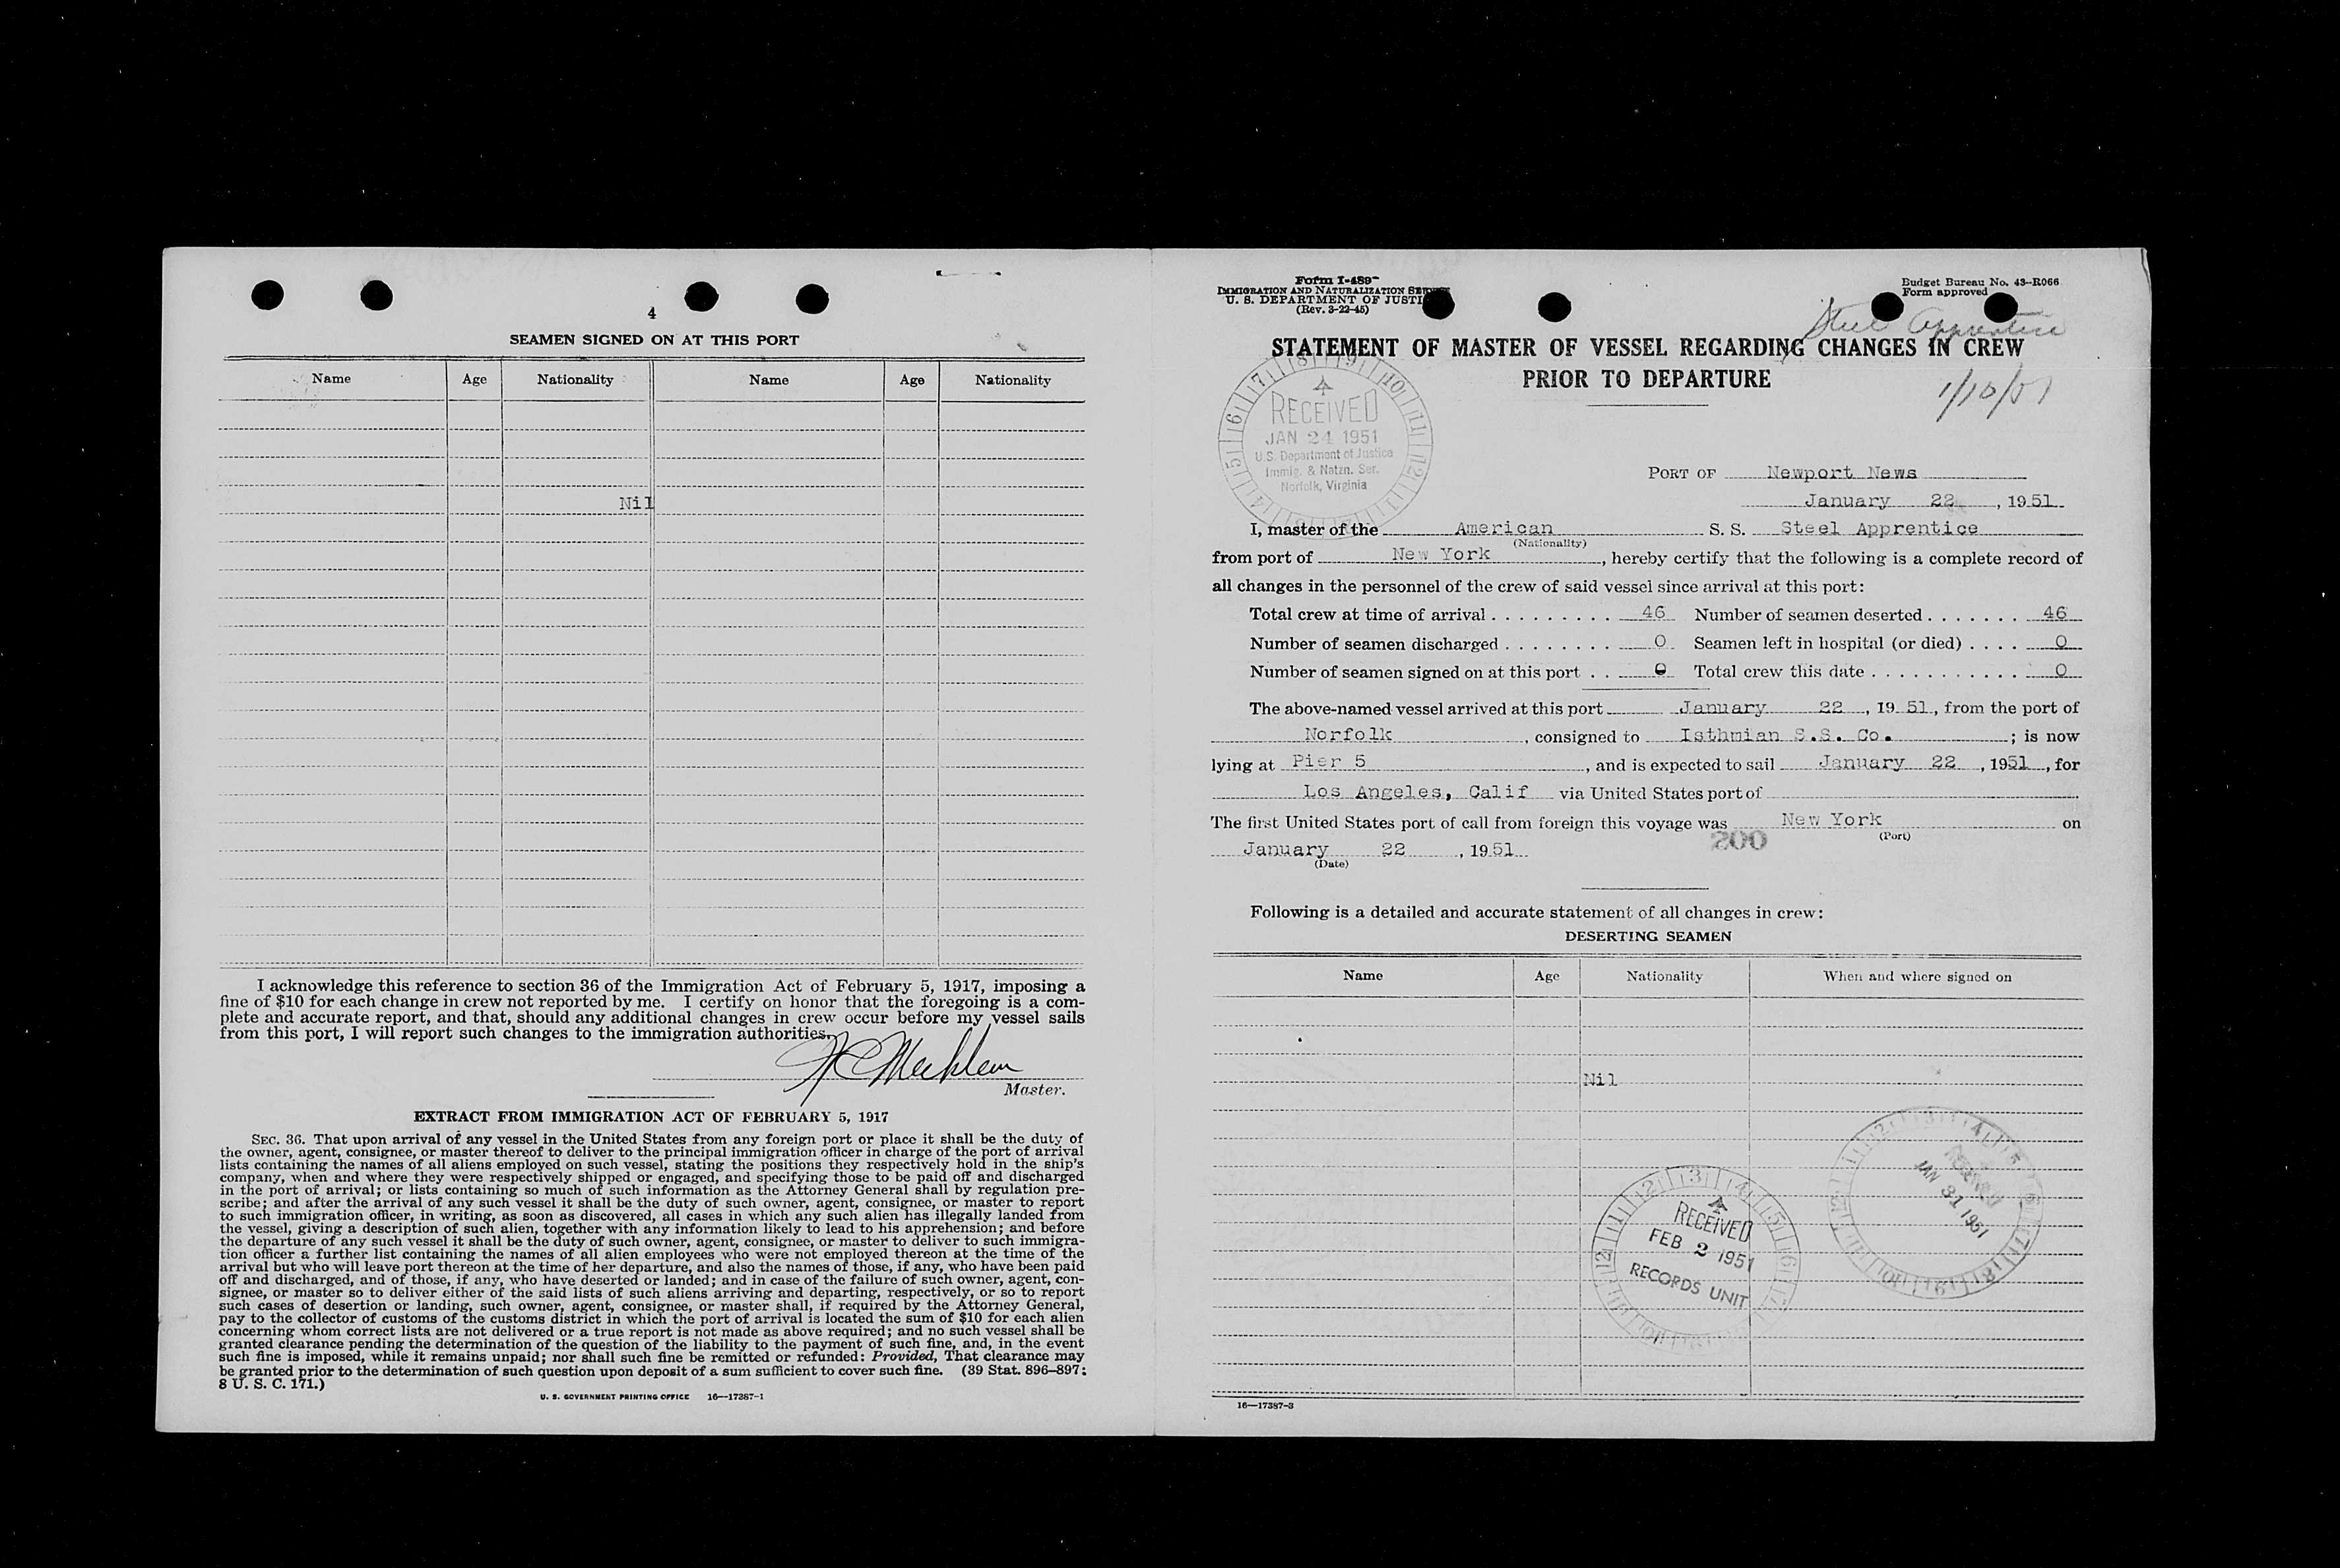 4
SEAMEN SIGNED ON AT THIS PORT
Name Age Nationality Name Age Nationality
Nil
I acknowledge this reference to section 36 of the Immigration Act of February 5, 1917, imposing a
fine of $10 for each change in crew not reported by me. I certify on honor that the foregoing is a com-
plete and accurate report, and that, should any additional changes in crew occur before my vessel sails
from this port, I will report such changes to the immigration authorities.
Master.
EXTRACT FROM IMMIGRATION ACT OF FEBRUARY 5, 1917
SEC. 36. That upon arrival of any vessel in the United States from any foreign port or place it shall be the duty of
the owner, agent, consignee, or master thereof to deliver to the principal immigration officer in charge of the port of arrival
lists containing the names of all aliens employed on such vessel, stating the positions they respectively hold in the ship's
company, when and where they were respectively shipped or engaged, and specifying those to be paid off and discharged
in the port of arrival; or lists containing so much of such information as the Attorney General shall by regulation pre-
scribe; and after the arrival of any such vessel it shall be the duty of such owner, agent, consignee, or master to report
to such immigration officer, in writing, as soon as discovered, all cases in which any such alien has illegally landed from
the vessel, giving a description of such alien, together with any information likely to lead to his apprehension; and before
the departure of any such vessel it shall be the duty of such owner, agent, consignee, or master to deliver to such immigra-
tion officer a further list containing the names of all alien employees who were not employed thereon at the time of the
arrival but who will leave port thereon at the time of her departure, and also the names of those, if any, who have been paid
off and discharged, and of those, if any, who have deserted or landed; and in case of the failure of such owner, agent, con-
signee, or master so to deliver either of the said lists of such aliens arriving and departing, respectively, or so to report
such cases of desertion or landing, such owner, agent, consignee, or master shall, if required by the Attorney General,
pay to the collector of customs of the customs district in which the port of arrival is located the sum of $10 for each alien
concerning whom correct lists are not delivered or a true report is not made as above required; and no such vessel shall be
granted clearance pending the determination of the question of the liability to the payment of such fine, and, in the event
such fine is imposed, while it remains unpaid; nor shall such fine be remitted or refunded: Provided, That clearance may
be granted prior to the determination of such question upon deposit of a sum sufficient to cover such fine. (39 Stat. 896–897;
8 U. S. C. 171.)
U. S. GOVERNMENT PRINTING OFFICE 16—17387-1
Form I-489
IMMIGRATION AND NATURALIZATION
U. S. DEPARTMENT OF JUSTI
(Rev. 3-22-45)
Budget Bureau No. 43–R066
Form approved
Steel Apprentice
STATEMENT OF MASTER OF VESSEL REGARDING CHANGES IN CREW
PRIOR TO DEPARTURE
1/10/51
RECEIVED
JAN 24 1951
U.S. Department of Justice
Immig. & Natzn. Ser.
Norfolk, Virginia
PORT OF Newport News
January 22, 1951
I, master of the American S. S. Steel Apprentice
(Nationality)
from port of New York, hereby certify that the following is a complete record of
all changes in the personnel of the crew of said vessel since arrival at this port:
Total crew at time of arrival . . . . . . . . . 46 Number of seamen deserted . . . . . . . 46
Number of seamen discharged . . . . . . . . 0 Seamen left in hospital (or died) . . . . 0
Number of seamen signed on at this port . . 0 Total crew this date . . . . . . . . . . . 0
The above-named vessel arrived at this port January 22, 1951, from the port of
Norfolk, consigned to Isthmian S.S. Co.; is now
lying at Pier 5, and is expected to sail January 22, 1951, for
Los Angeles, Calif via United States port of
The first United States port of call from foreign this voyage was New York on
200 (Port)
January 22, 1951
(Date)
Following is a detailed and accurate statement of all changes in crew:
DESERTING SEAMEN
Name Age Nationality When and where signed on
Nil
RECEIVED
JAN 31 1951
RECEIVED
FEB 2 1951
RECORDS UNIT
16—17387-3